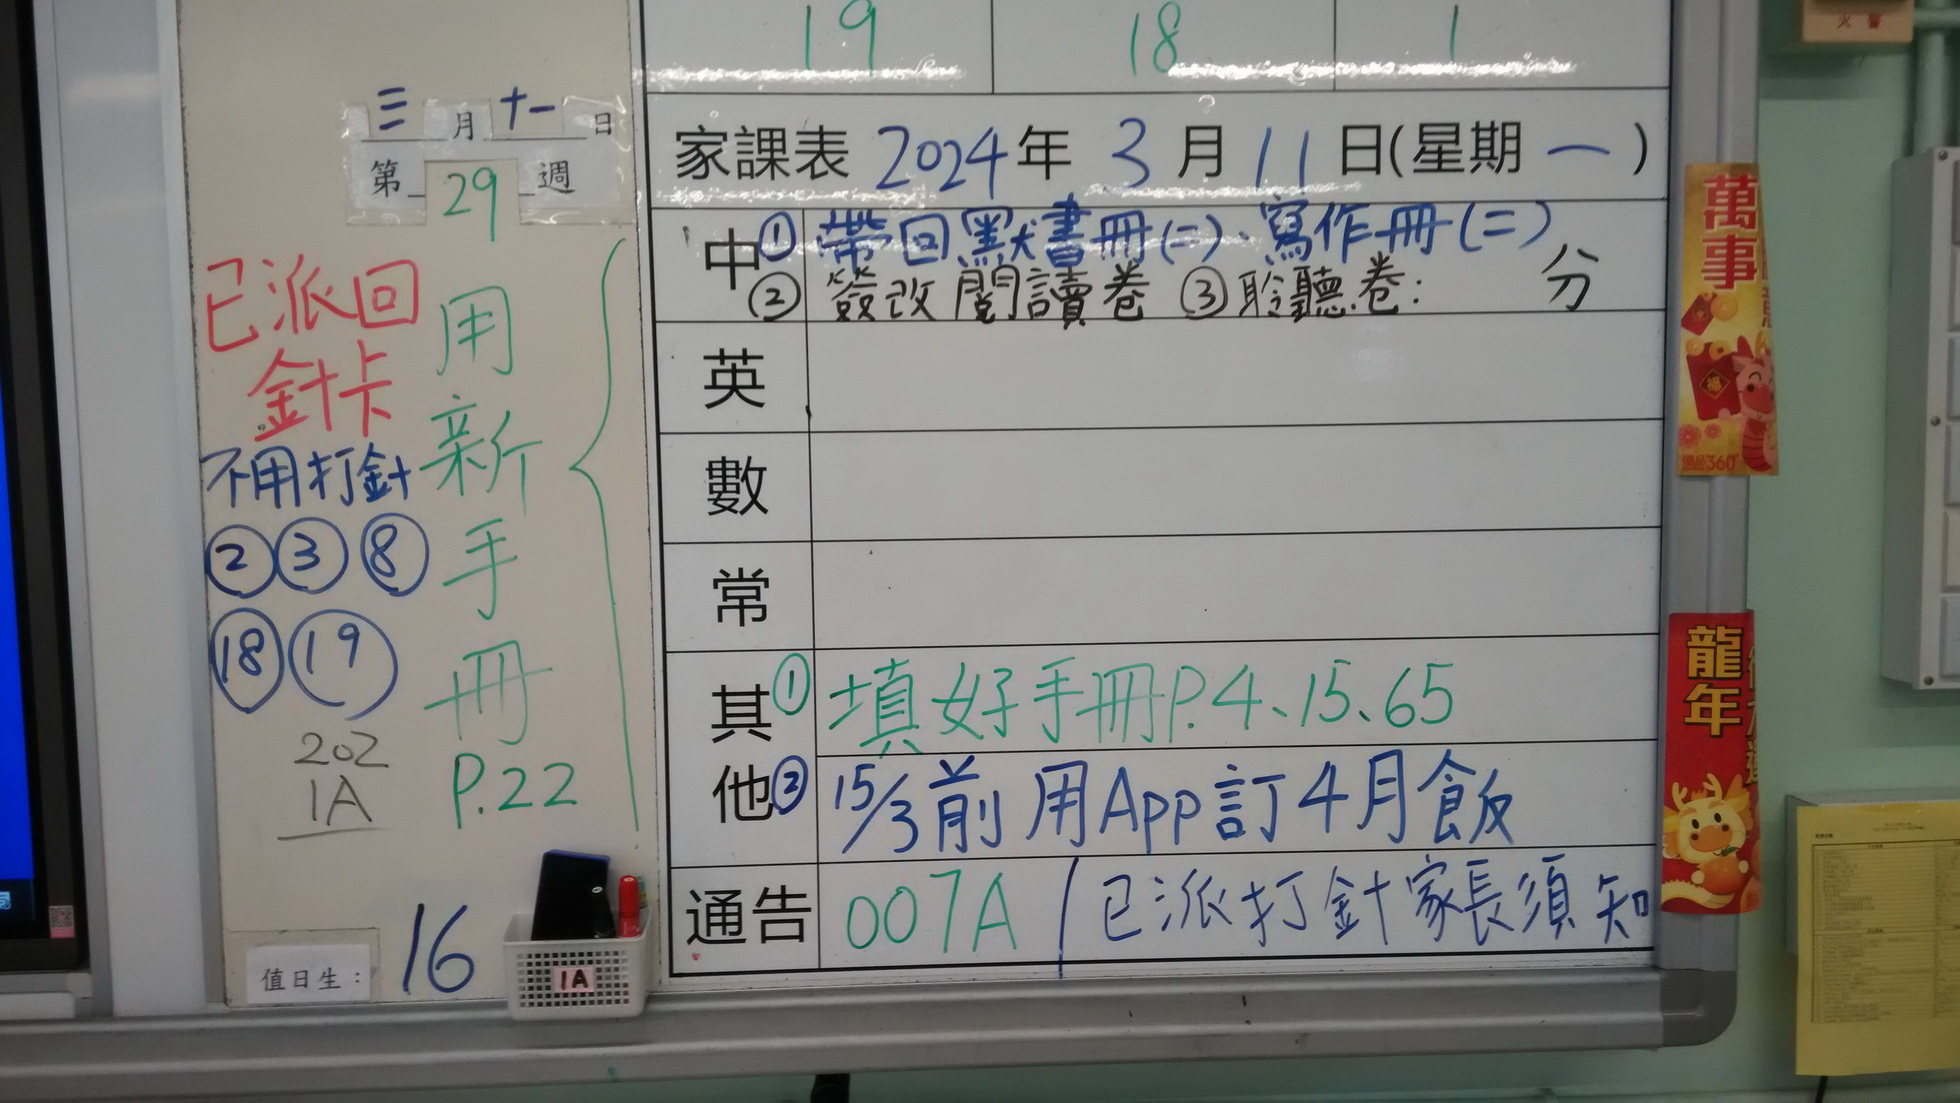 19 18 1
三月十一日
第29週
已派回
針卡
不用打針
② ③ ⑧
⑱ ⑲
202
1A
用新手冊
P.22
值日生：16
1A
家課表 2024年3月11日(星期一)
中 ①帶回默書冊(二)、寫作冊(二)
②簽改閱讀卷 ③聆聽卷：　分
英
數
常
其他 ①填好手冊P.4、15、65
②15/3前用App訂4月飯
通告 007A / 已派打針家長須知
萬事
福
360°
龍年
火警